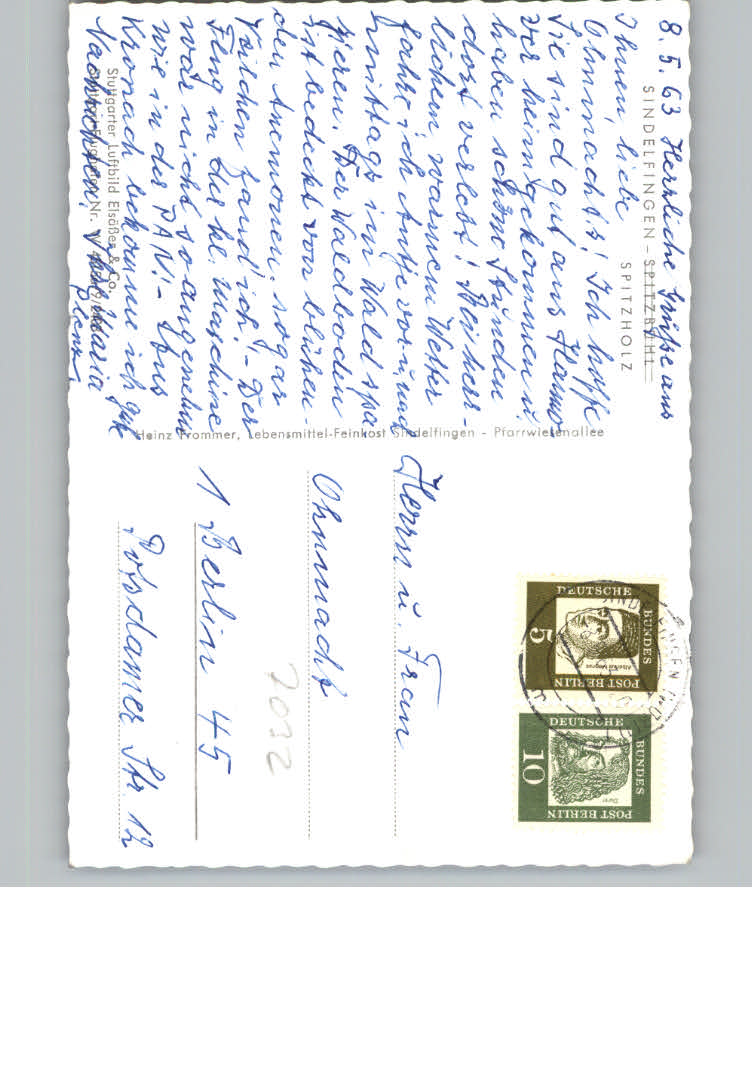 8.5.63 Herzliche Grüße aus
SINDELFINGEN - SPITZBÜHL
SPITZHOLZ
Ihnen, liebe
Ohnmachts! Ich hoffe
Sie sind gut aus Hannov
ver heimgekommen u.
haben schöne Stunden
dort verlebt! Bei herr-
lichem warmem Wetter
fahre ich Antje vor- und
mittags im Wald spa
zieren. Der Waldboden
ist bedeckt von blühen-
den Anemonen. sogar
Veilchen fand ich! - Der
Flug in der kl. Maschine
war nicht so angenehm
wie in der PAN! - Aus
Kronach bekomme ich gute
Nachrichten. Maria
Stuttgarter Luftbild Elsäßer & Co.
Heinz Frommer, Lebensmittel-Feinkost Sindelfingen - Pfarrwiesenallee
Herrn u. Frau
Ohnmacht
1 Berlin 45
Potsdamer Str 12
7032
DEUTSCHE
BUNDES
POST BERLIN
5
Albertus Magnus
DEUTSCHE
BUNDES
POST BERLIN
10
Dürer
SINDELFINGEN